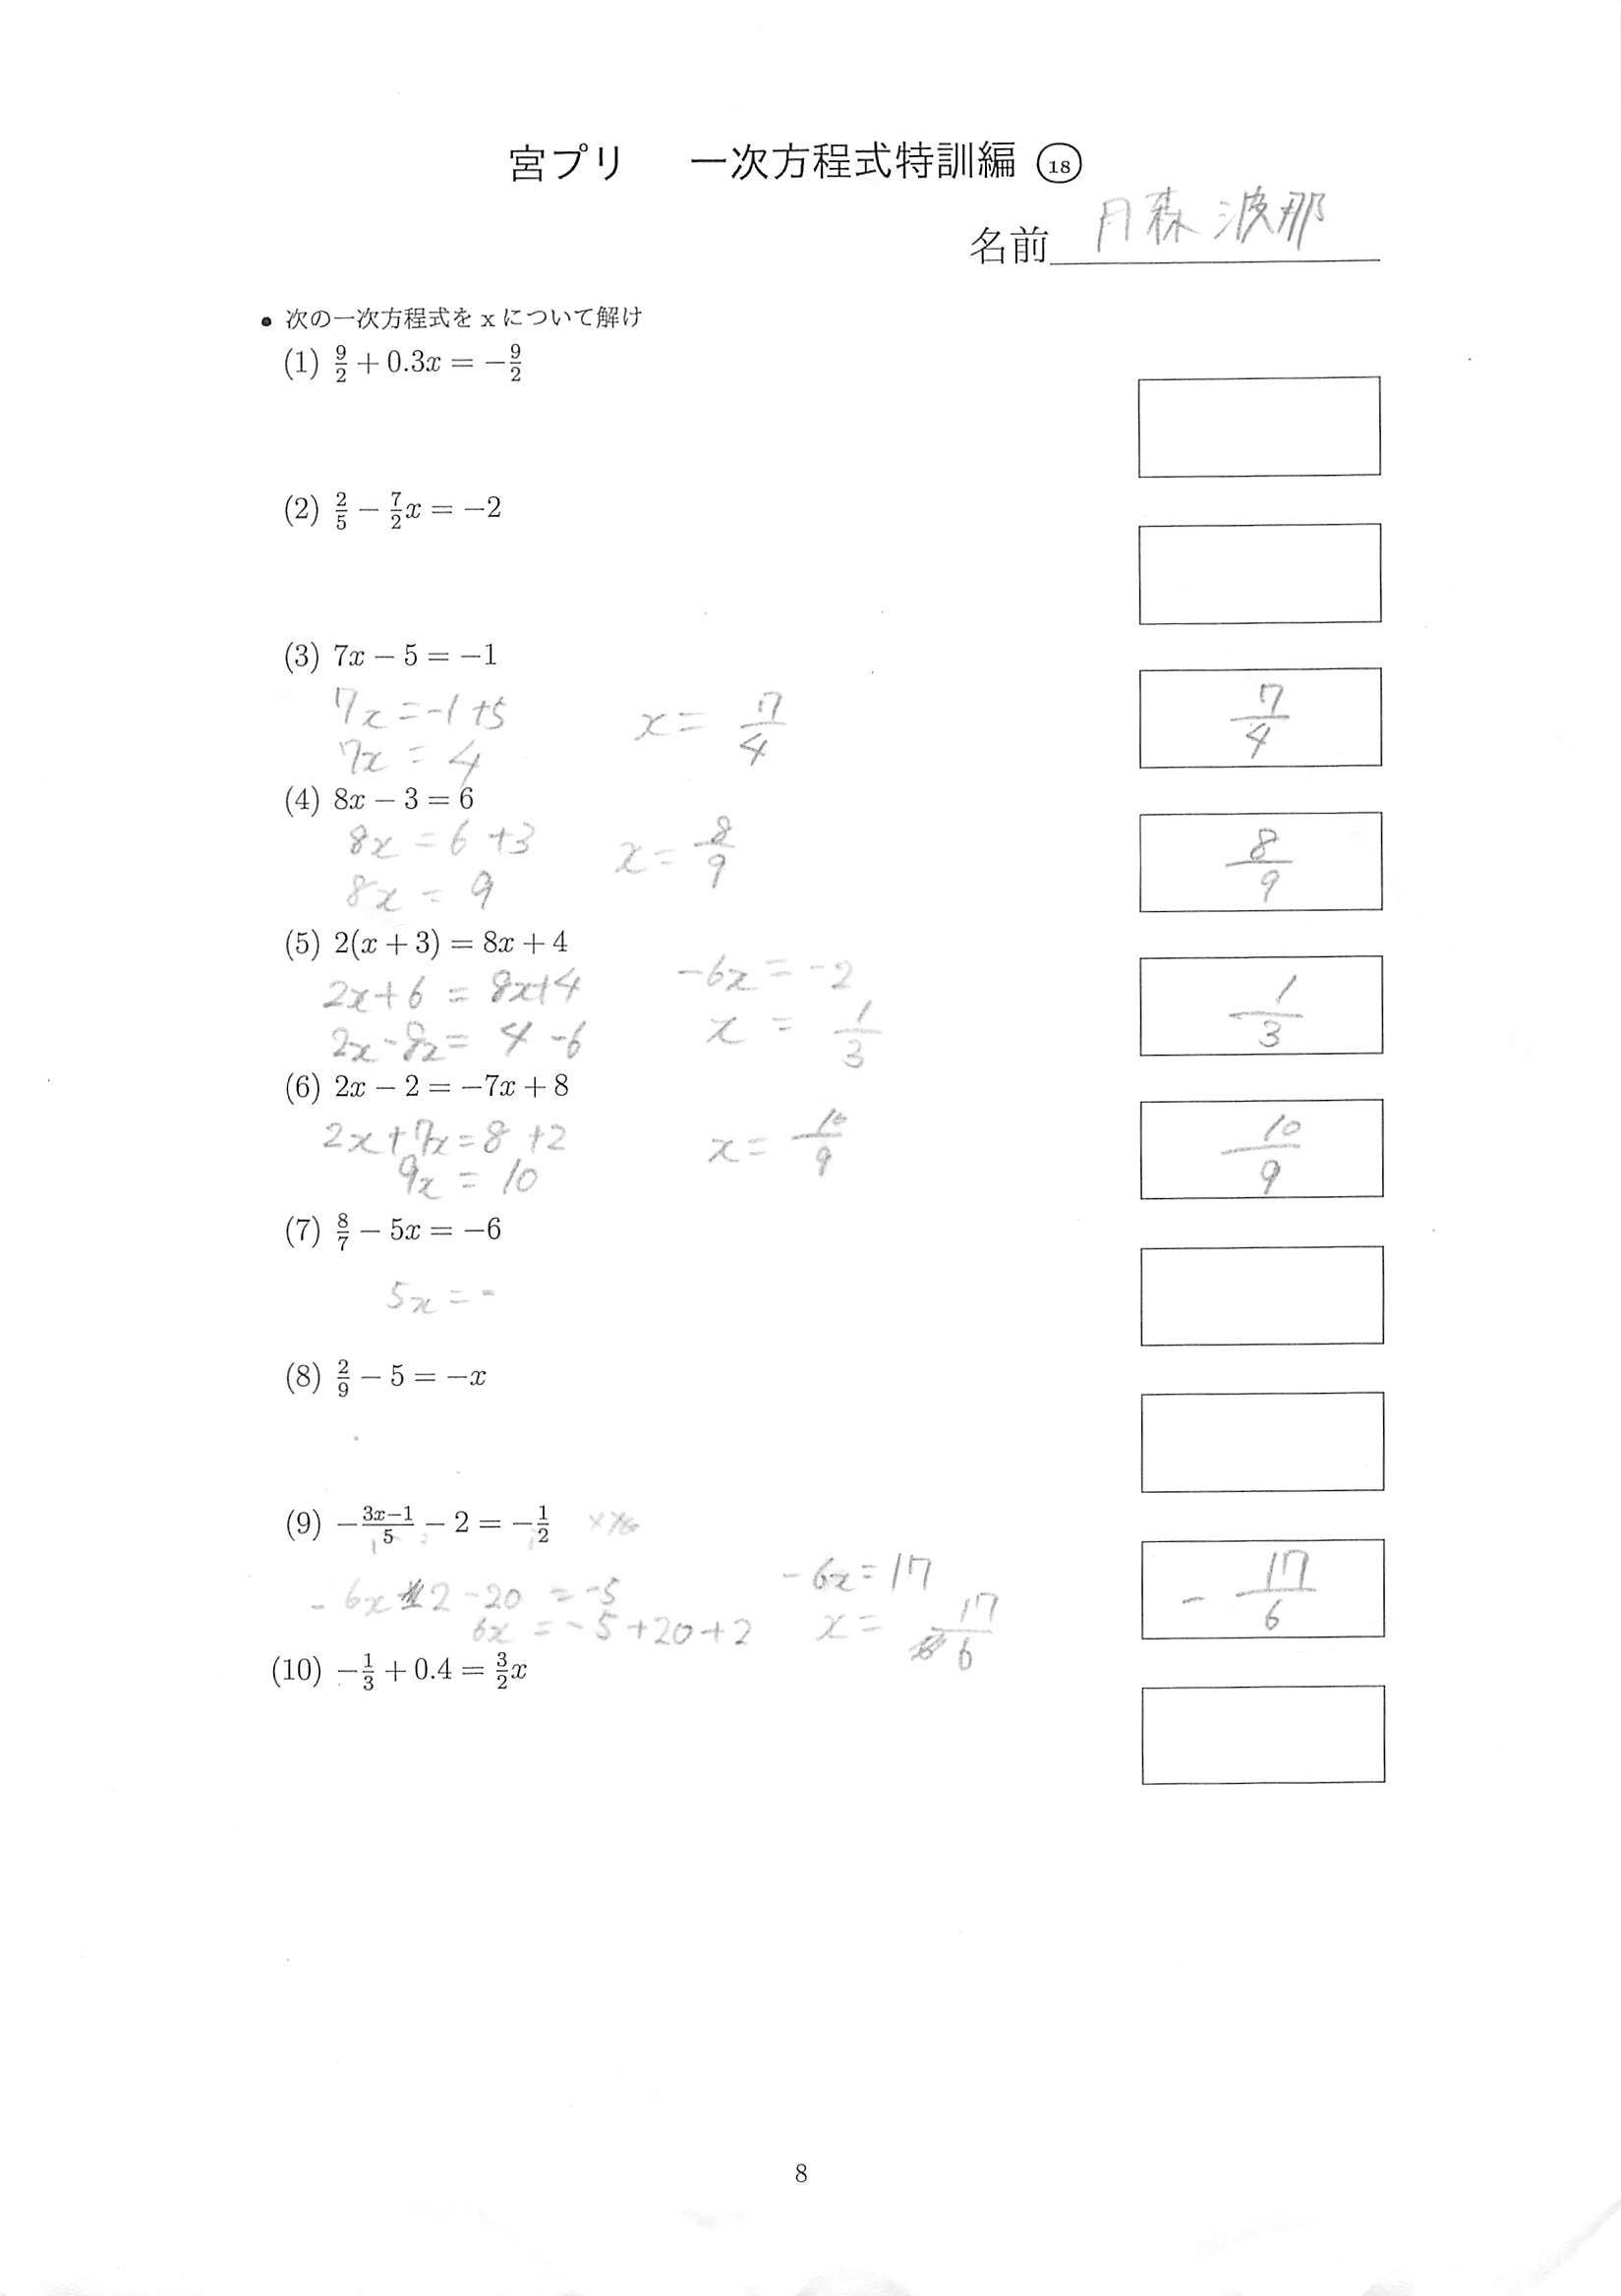 宮プリ 一次方程式特訓編 ⑱
名前 月森 波那
• 次の一次方程式を x について解け
(1) 9/2 + 0.3x = −9/2
(2) 2/5 − 7/2 x = −2
(3) 7x − 5 = −1
7x = -1 +5
7x = 4
x = 7/4
7/4
(4) 8x − 3 = 6
8x = 6 +3
8x = 9
x = 8/9
8/9
(5) 2(x + 3) = 8x + 4
2x+6 = 8x+4
2x-8x= 4 -6
-6x = -2
x = 1/3
1/3
(6) 2x − 2 = −7x + 8
2x+7x=8 +2
9x = 10
x = 10/9
10/9
(7) 8/7 − 5x = −6
5x = -
(8) 2/9 − 5 = −x
(9) −(3x−1)/5 − 2 = −1/2
- 6x 2 -20 = -5
6x = -5+20+2
-6x = 17
x = 17/6
- 17/6
(10) −1/3 + 0.4 = 3/2 x
8